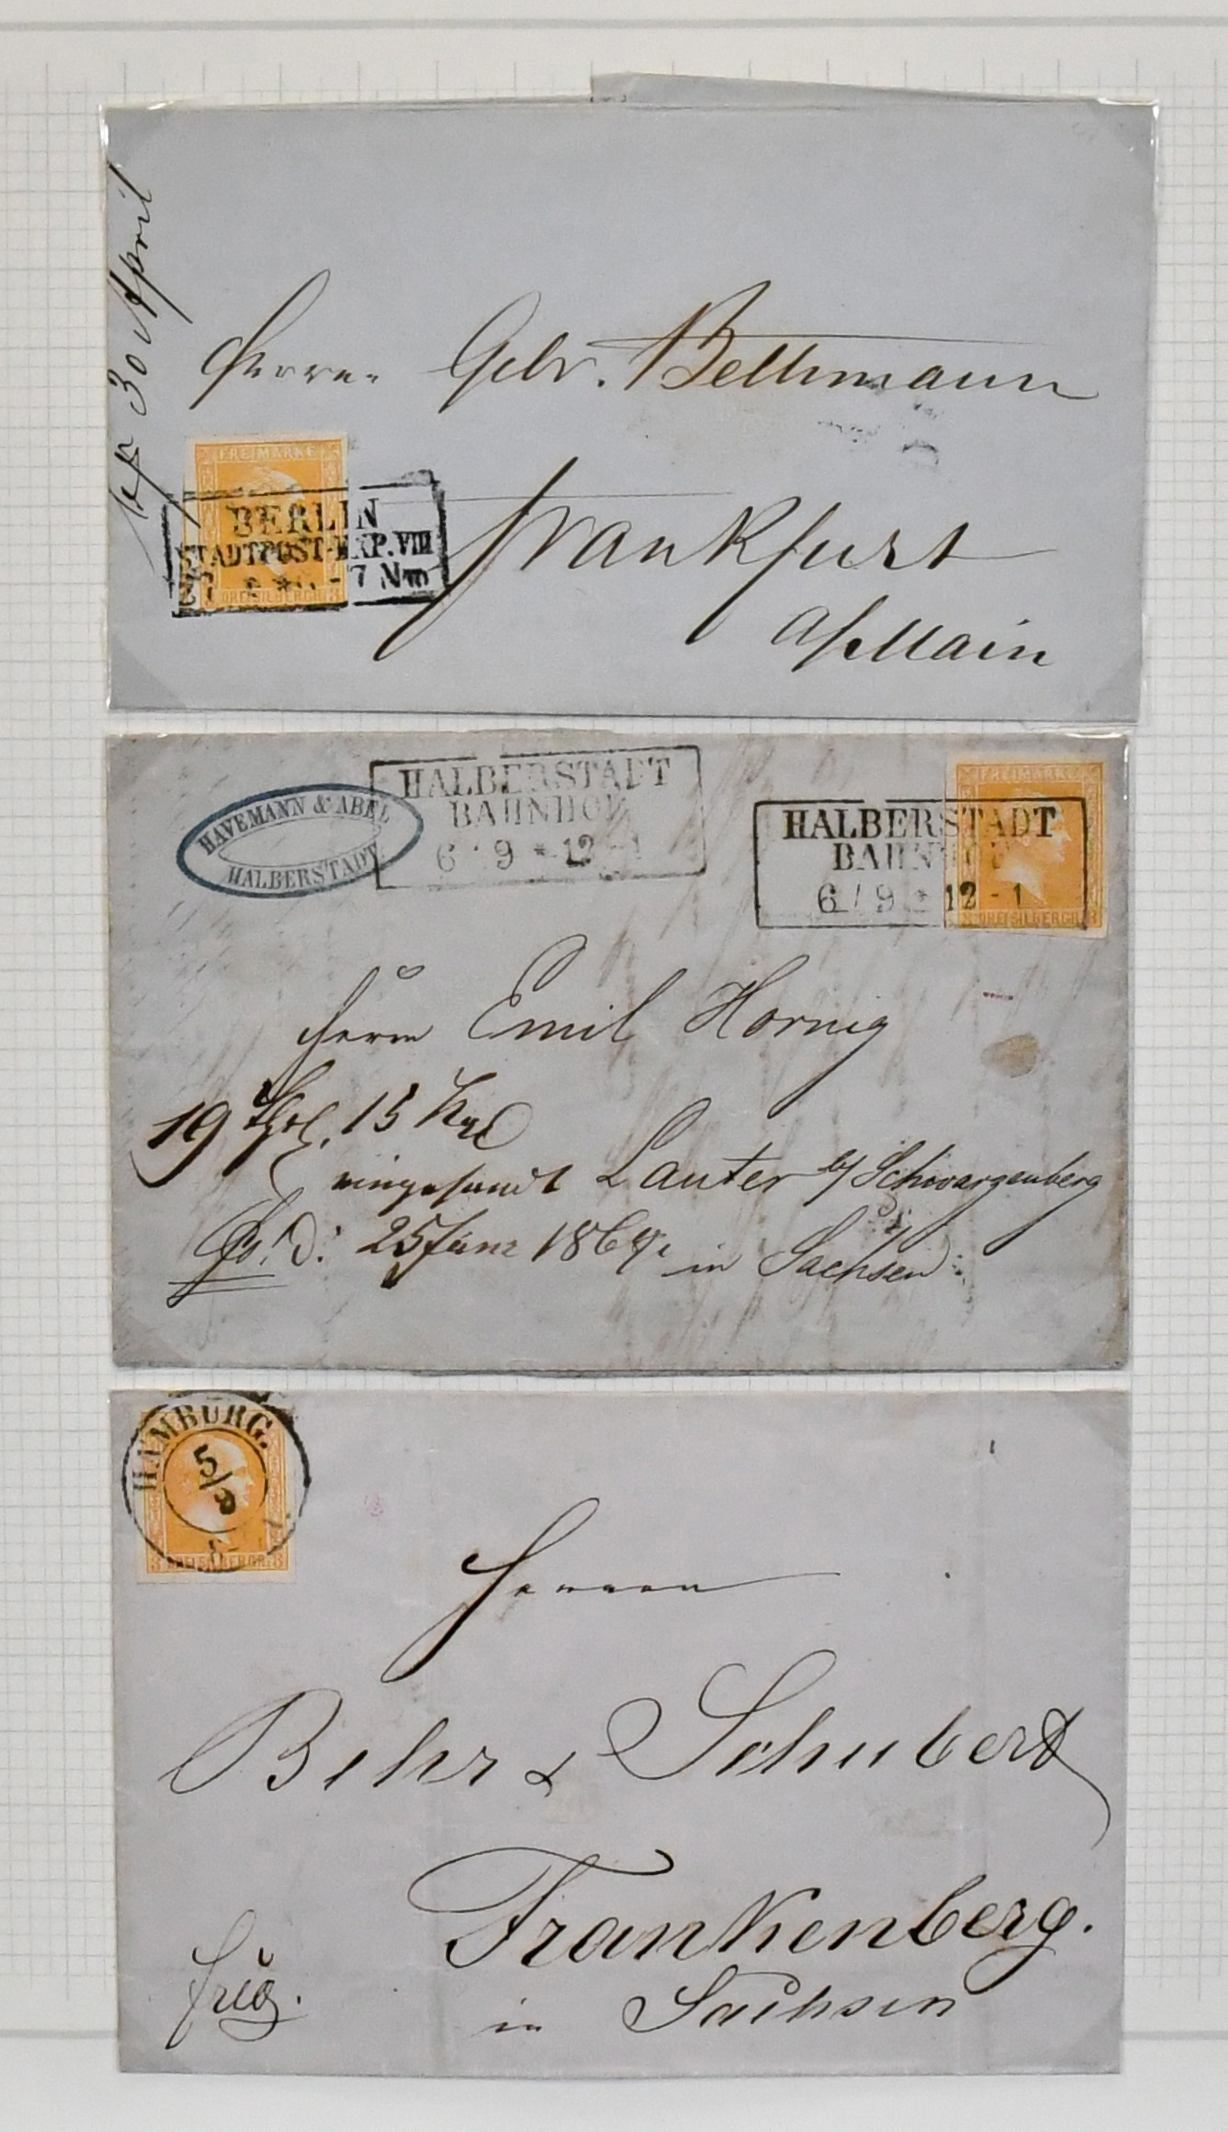 30 April
Herren Gebr. Bethmann
Frankfurt
a/Main
FREIMARKE
DREI SILBERGR.
BERLIN
STADTPOST-EXP. VIII
27 - 7 Nm
HAVEMANN & ABEL
HALBERSTADT
HALBERSTADT
BAHNHOF
6 / 9 * 12 - 1
HALBERSTADT
BAHNHOF
6 / 9 * 12 - 1
FREIMARKE
3 DREI SILBERGR. 3
Herrn Emil Hornig
19 15
eingesandt Lauter b/ Schwarzenberg
in Sachsen
HAMBURG.
5/9
3 DREI SILBERGR. 3
Herren
Behr & Schubert
Frankenberg.
in Sachsen